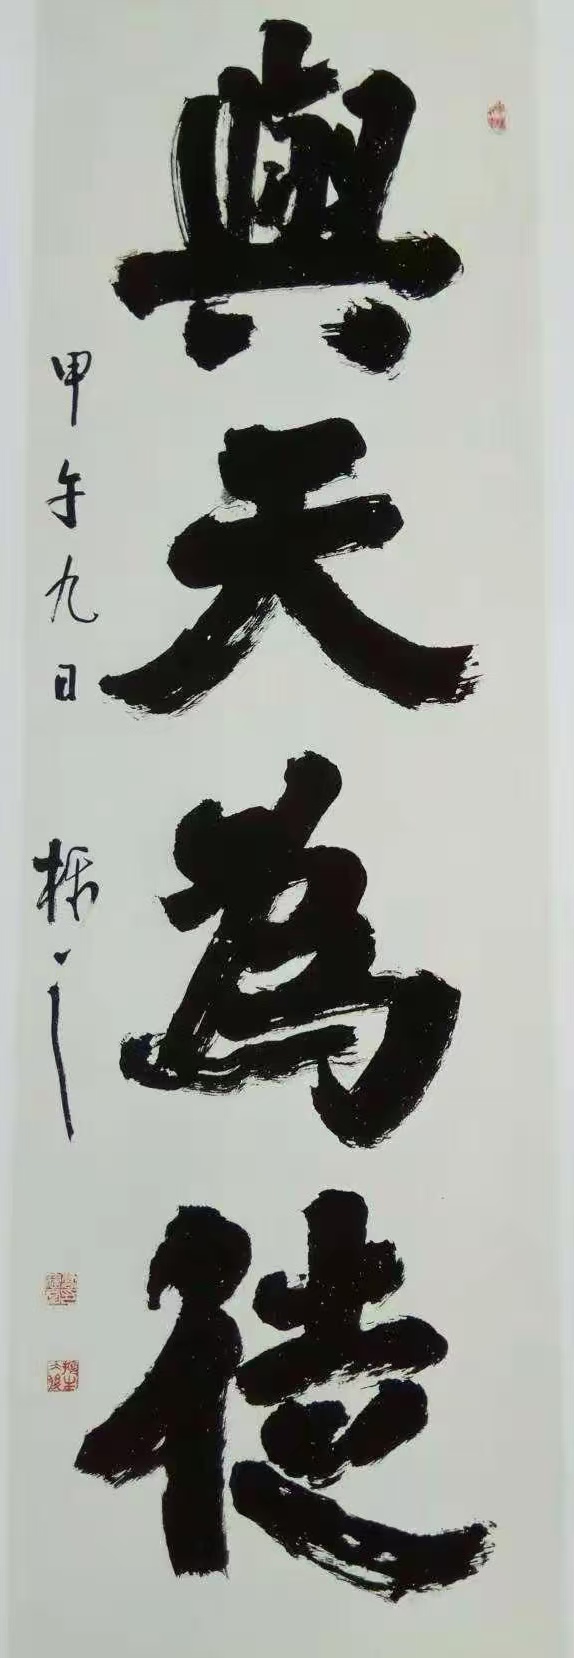 與天為徒
甲午九日